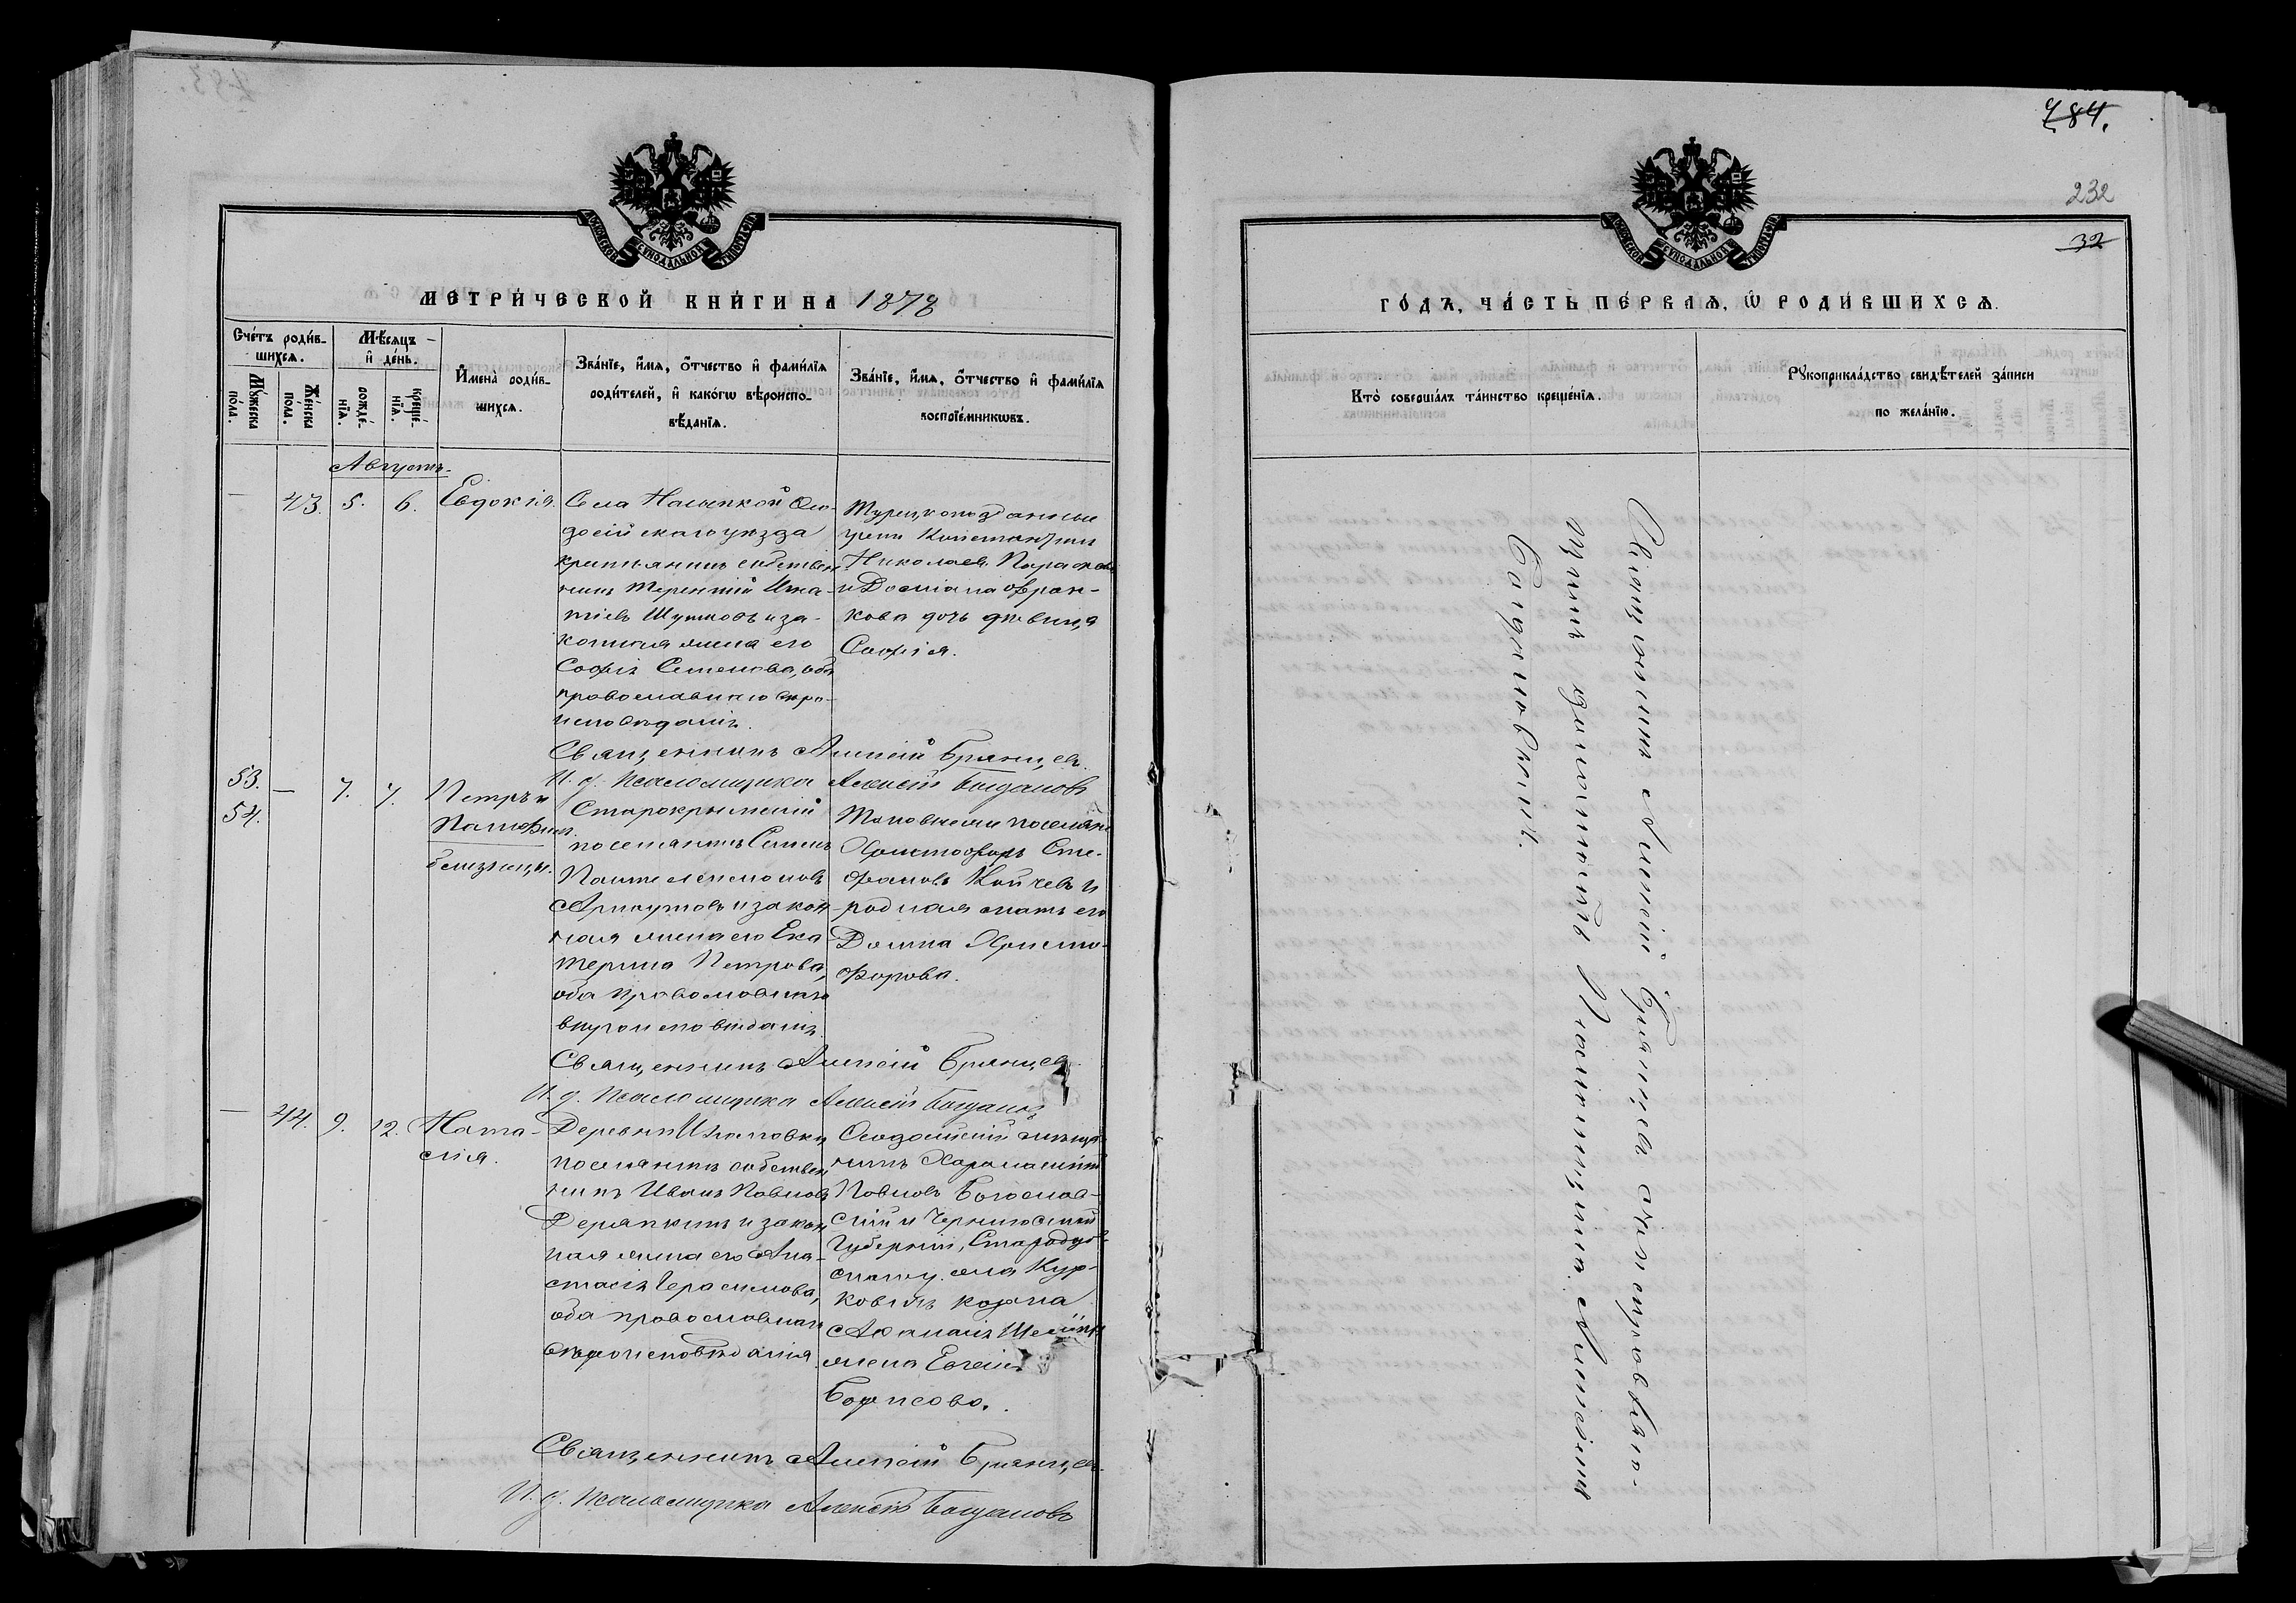 484.
232
32
МЕТРИ́ЧЕСКОЙ КНИ́ГИ НА 1878
Сче́тъ роди́в-
шихсѧ.
Мѣ́сѧцъ
и҆ де́нь.
Мꙋ́жеска
по́ла.
Же́нска
по́ла.
рожде́-
нїѧ.
креще́-
нїѧ.
И҆мена̀ роди́в-
шихсѧ.
Зва́нїе, и҆́мѧ, ѻ҆́тчество и҆ фами́лїѧ
роди́телей, и҆ како́гѡ вѣроиспо-
вѣ́данїѧ.
Зва́нїе, и҆́мѧ, ѻ҆́тчество и҆ фами́лїѧ
воспрїе́мникѡвъ.
Августъ
— 43. 5. 6. Евдокія.
Села Насыпкой Ѳео-
досійскаго уѣзда
крестьянинъ собствен
никъ Терентій Игна-
тіевъ и за-
конная жена его
Софія Семенова, оба
православнаго вѣро-
исповѣданія.
Турецкоподанные
греки Константинъ
Николаевъ
и
кова дочь дѣвица
Софія.
Священникъ Алексій Брянцевъ.
И. д. Псаломщика Алексѣй Богдановъ
53.
54.
— 7. 7. Петръ и
близнецы.
Старокрымскій
поселянинъ Семенъ
Пантелеимоновъ
и закон
ная жена его Ека
терина Петрова,
оба православнаго
вѣроисповѣданія
поселяне
Христофоръ Сте-
фановъ Койчевъ и
родная мать его
Домна Христо-
форова.
Священникъ Алексій Брянцевъ
И. д. Псаломщика Алексѣй Богдановъ
— 44. 9. 12. Наста-
сія.
Деревни
поселянинъ собствен
никъ Иванъ Павловъ
Дерапкинъ и закон
ная жена его Ана-
стасія Герасимова,
оба православнаго
вѣроисповѣданія.
Ѳеодосійскій мѣща-
нинъ Харлампій
Павловъ Богослов-
скій и Черниговской
Губерніи, Стародуб-
скаго у. села Кур-
ковичъ
жена Евгенія
Борисова.
Священникъ Алексій Брянцевъ.
И. д. Псаломщика Алексѣй Богдановъ
ГО́ДЪ, ЧА́СТЬ ПЕ́РВАѦ, Ѡ҆ РОДИ́ВШИХСѦ.
Кто̀ соверша́лъ та́инство креще́нїѧ.
Рꙋкоприкла́дство свидѣ́телей за́писи
по жела́нїю.
Священникъ Алексій Брянцевъ
Псаломщика Алексѣемъ
Богдановымъ.